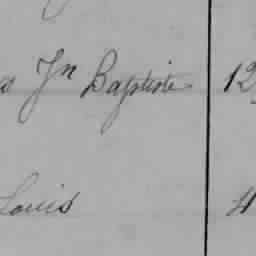 Jn Baptiste 12
Louis 4